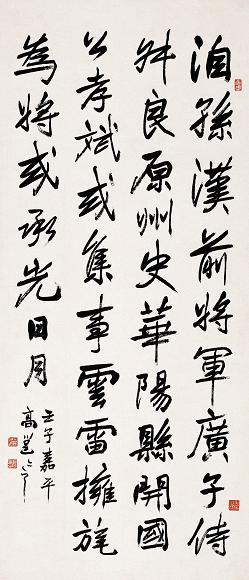 洎孫漢前將軍廣子侍
叔良原州史華陽縣開國
公孝斌或集事雲雷擁旄
為將或承光日月
壬子嘉平
高邕